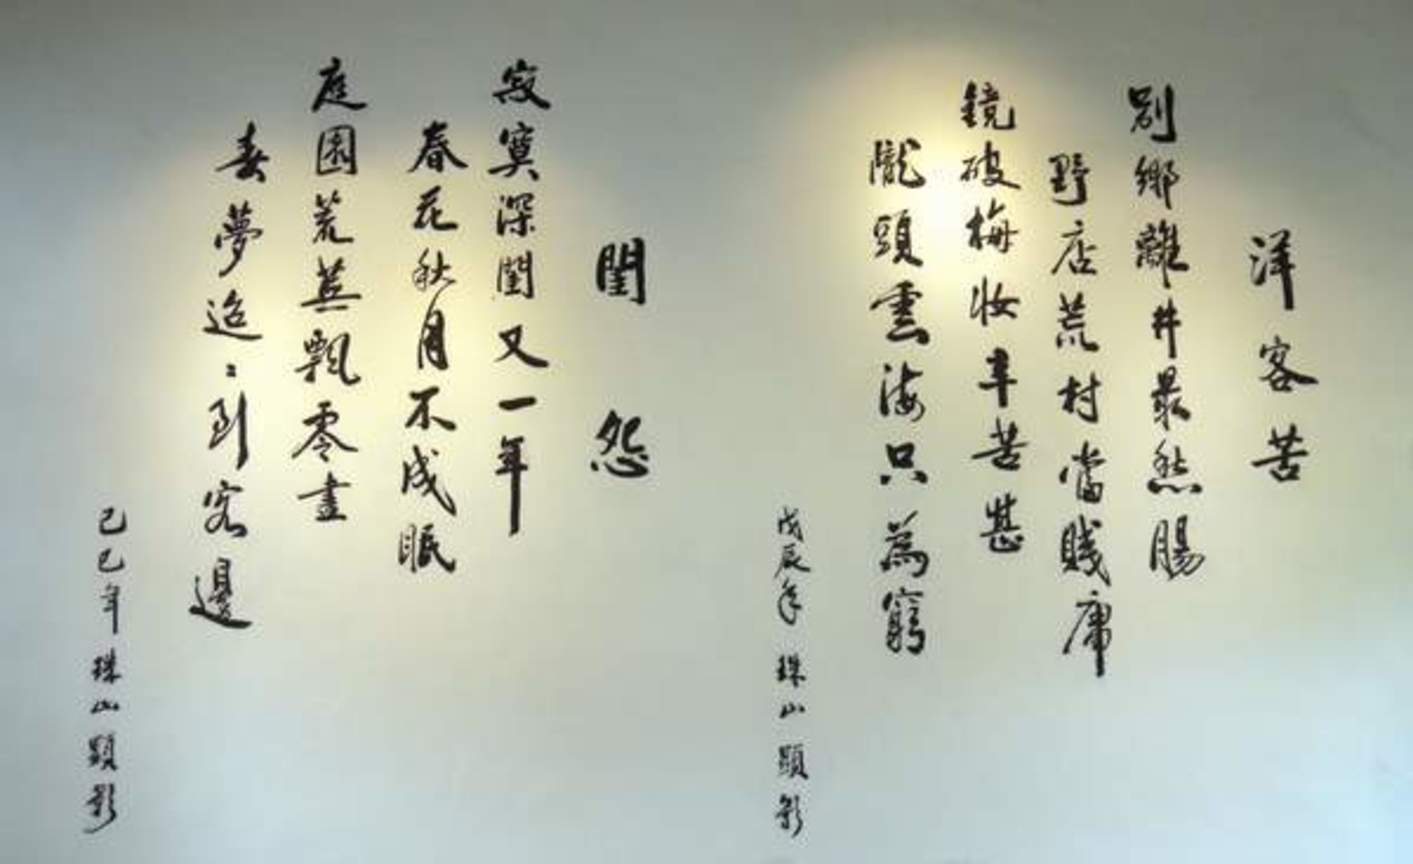 洋客苦
別鄉離井最愁腸
野店荒村當賤傭
鏡破梅妝辛苦甚
隴頭雲海只為窮
戊辰年 珠山顯影
閨怨
寂寞深閨又一年
春花秋月不成眠
庭園荒蕪飄零盡
妾夢迢〻到客邊
己巳年 珠山顯影